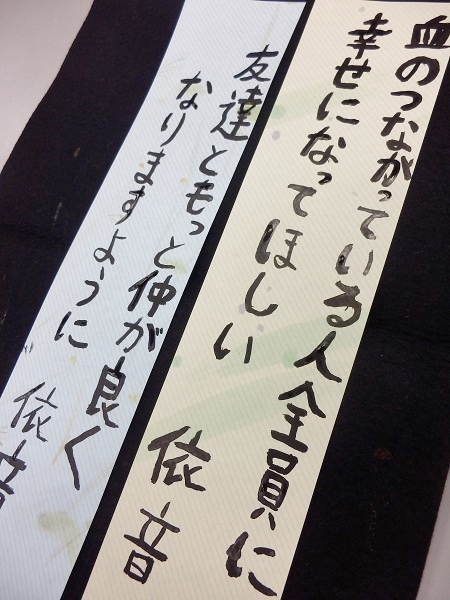 血のつながっている人全員に
幸せになってほしい
依音
友達ともっと仲が良く
なりますように
依音